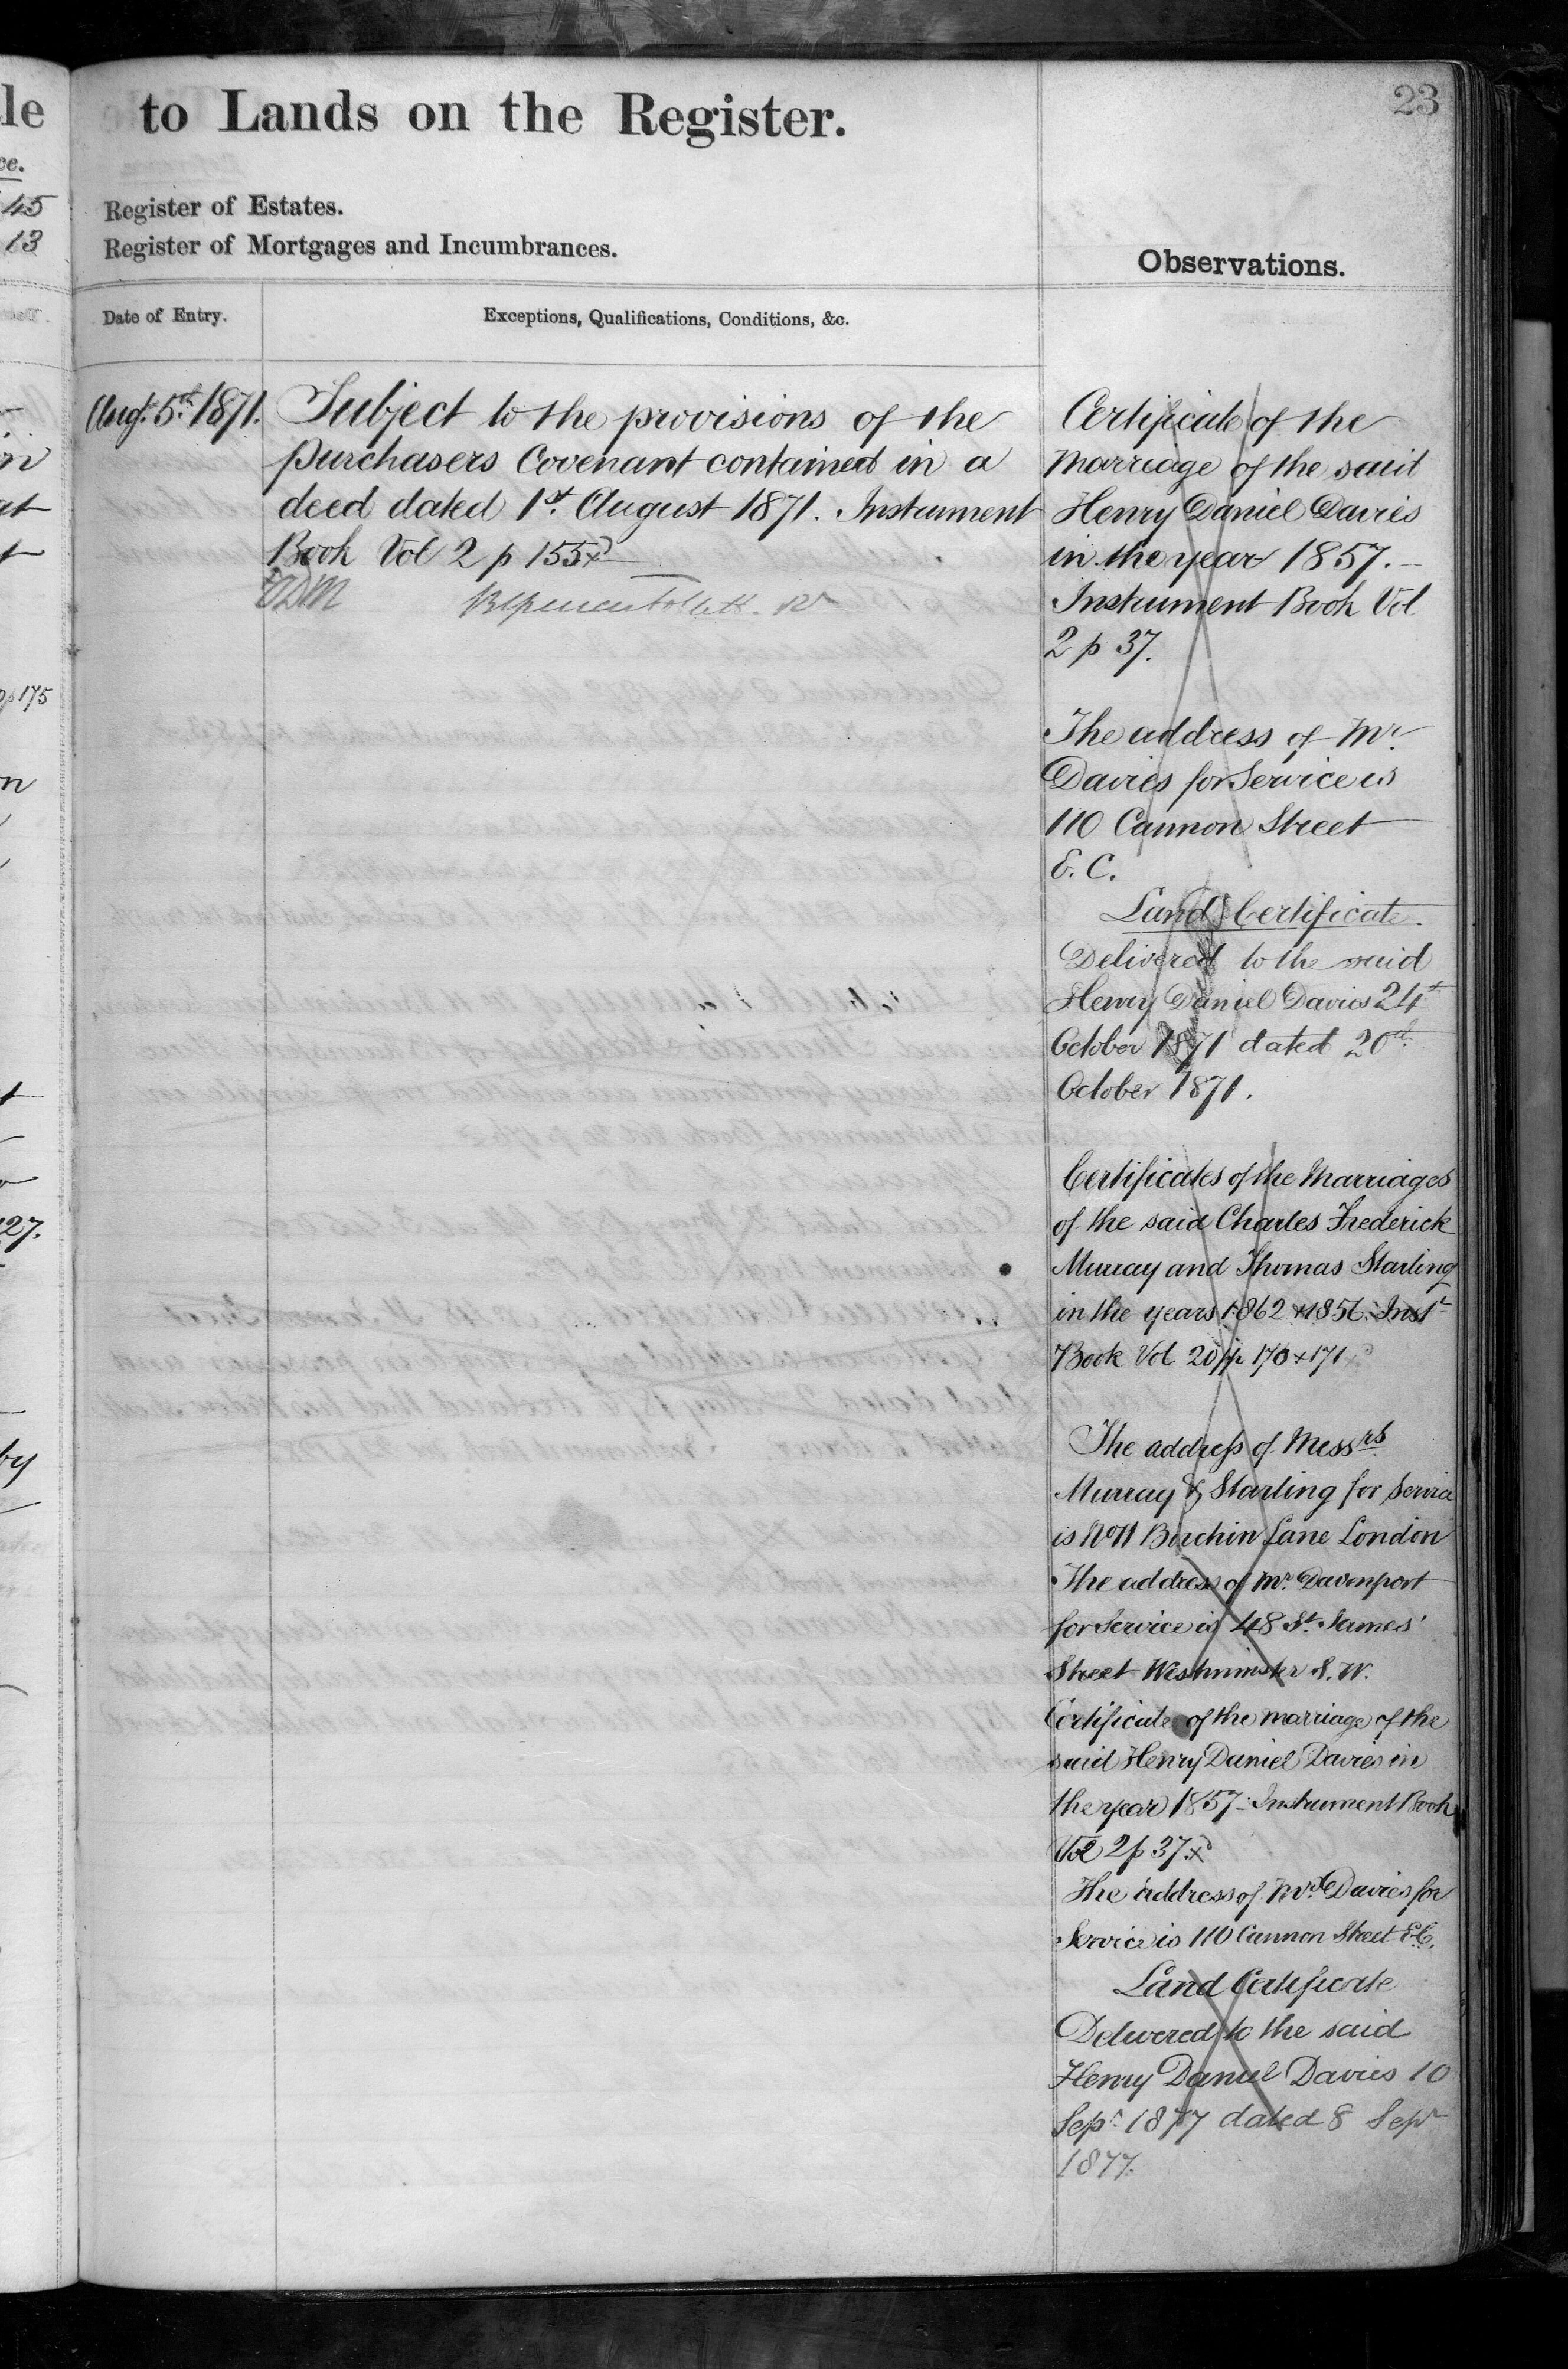 le
ce.
45
13
23
to Lands on the Register.
Register of Estates.
Register of Mortgages and Incumbrances.
Date of Entry.
Exceptions, Qualifications, Conditions, &c.
Observations.
Augt. 5th 1871.
Subject to the provisions of the
purchasers Covenant contained in a
deed dated 1st August 1871. Instrument
Book Vol 2 p 155
Certificate of the
Marriage of the said
Henry Daniel Davies
in the year 1857.
Instrument Book Vol
2 p 37.
The address of Mr.
Davies for Service is
110 Cannon Street
E. C.
Land Certificate
Delivered to the said
Henry Daniel Davies 24th
October 1871 dated 20th
October 1871.
Certificates of the Marriages
of the said Charles Frederick
Murray and Thomas Starling
in the years 1862 & 1856. Inst
Book Vol 20 pp 170 & 171
The address of Messrs
Murray & Starling for Service
is No 11 Birchin Lane London
The address of Mr. Davenport
for Service is 48 St. James'
Street Westminster S. W.
Certificate of the marriage of the
said Henry Daniel Davies in
the year 1857. Instrument Book
Vol 2 p 37
The address of Davies for
Service is 110 Cannon Street E.C.
Land Certificate
Delivered to the said
Henry Daniel Davies 10
Sepr 1877 dated 8 Sepr
1877.
p 175
27.
by